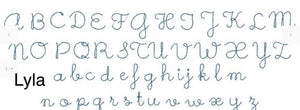 A B C D E F G H I J K L M
N O P Q R S T U V W X Y Z
Lyla a b c d e f g h i j k l m
n o p q r s t u v w x y z